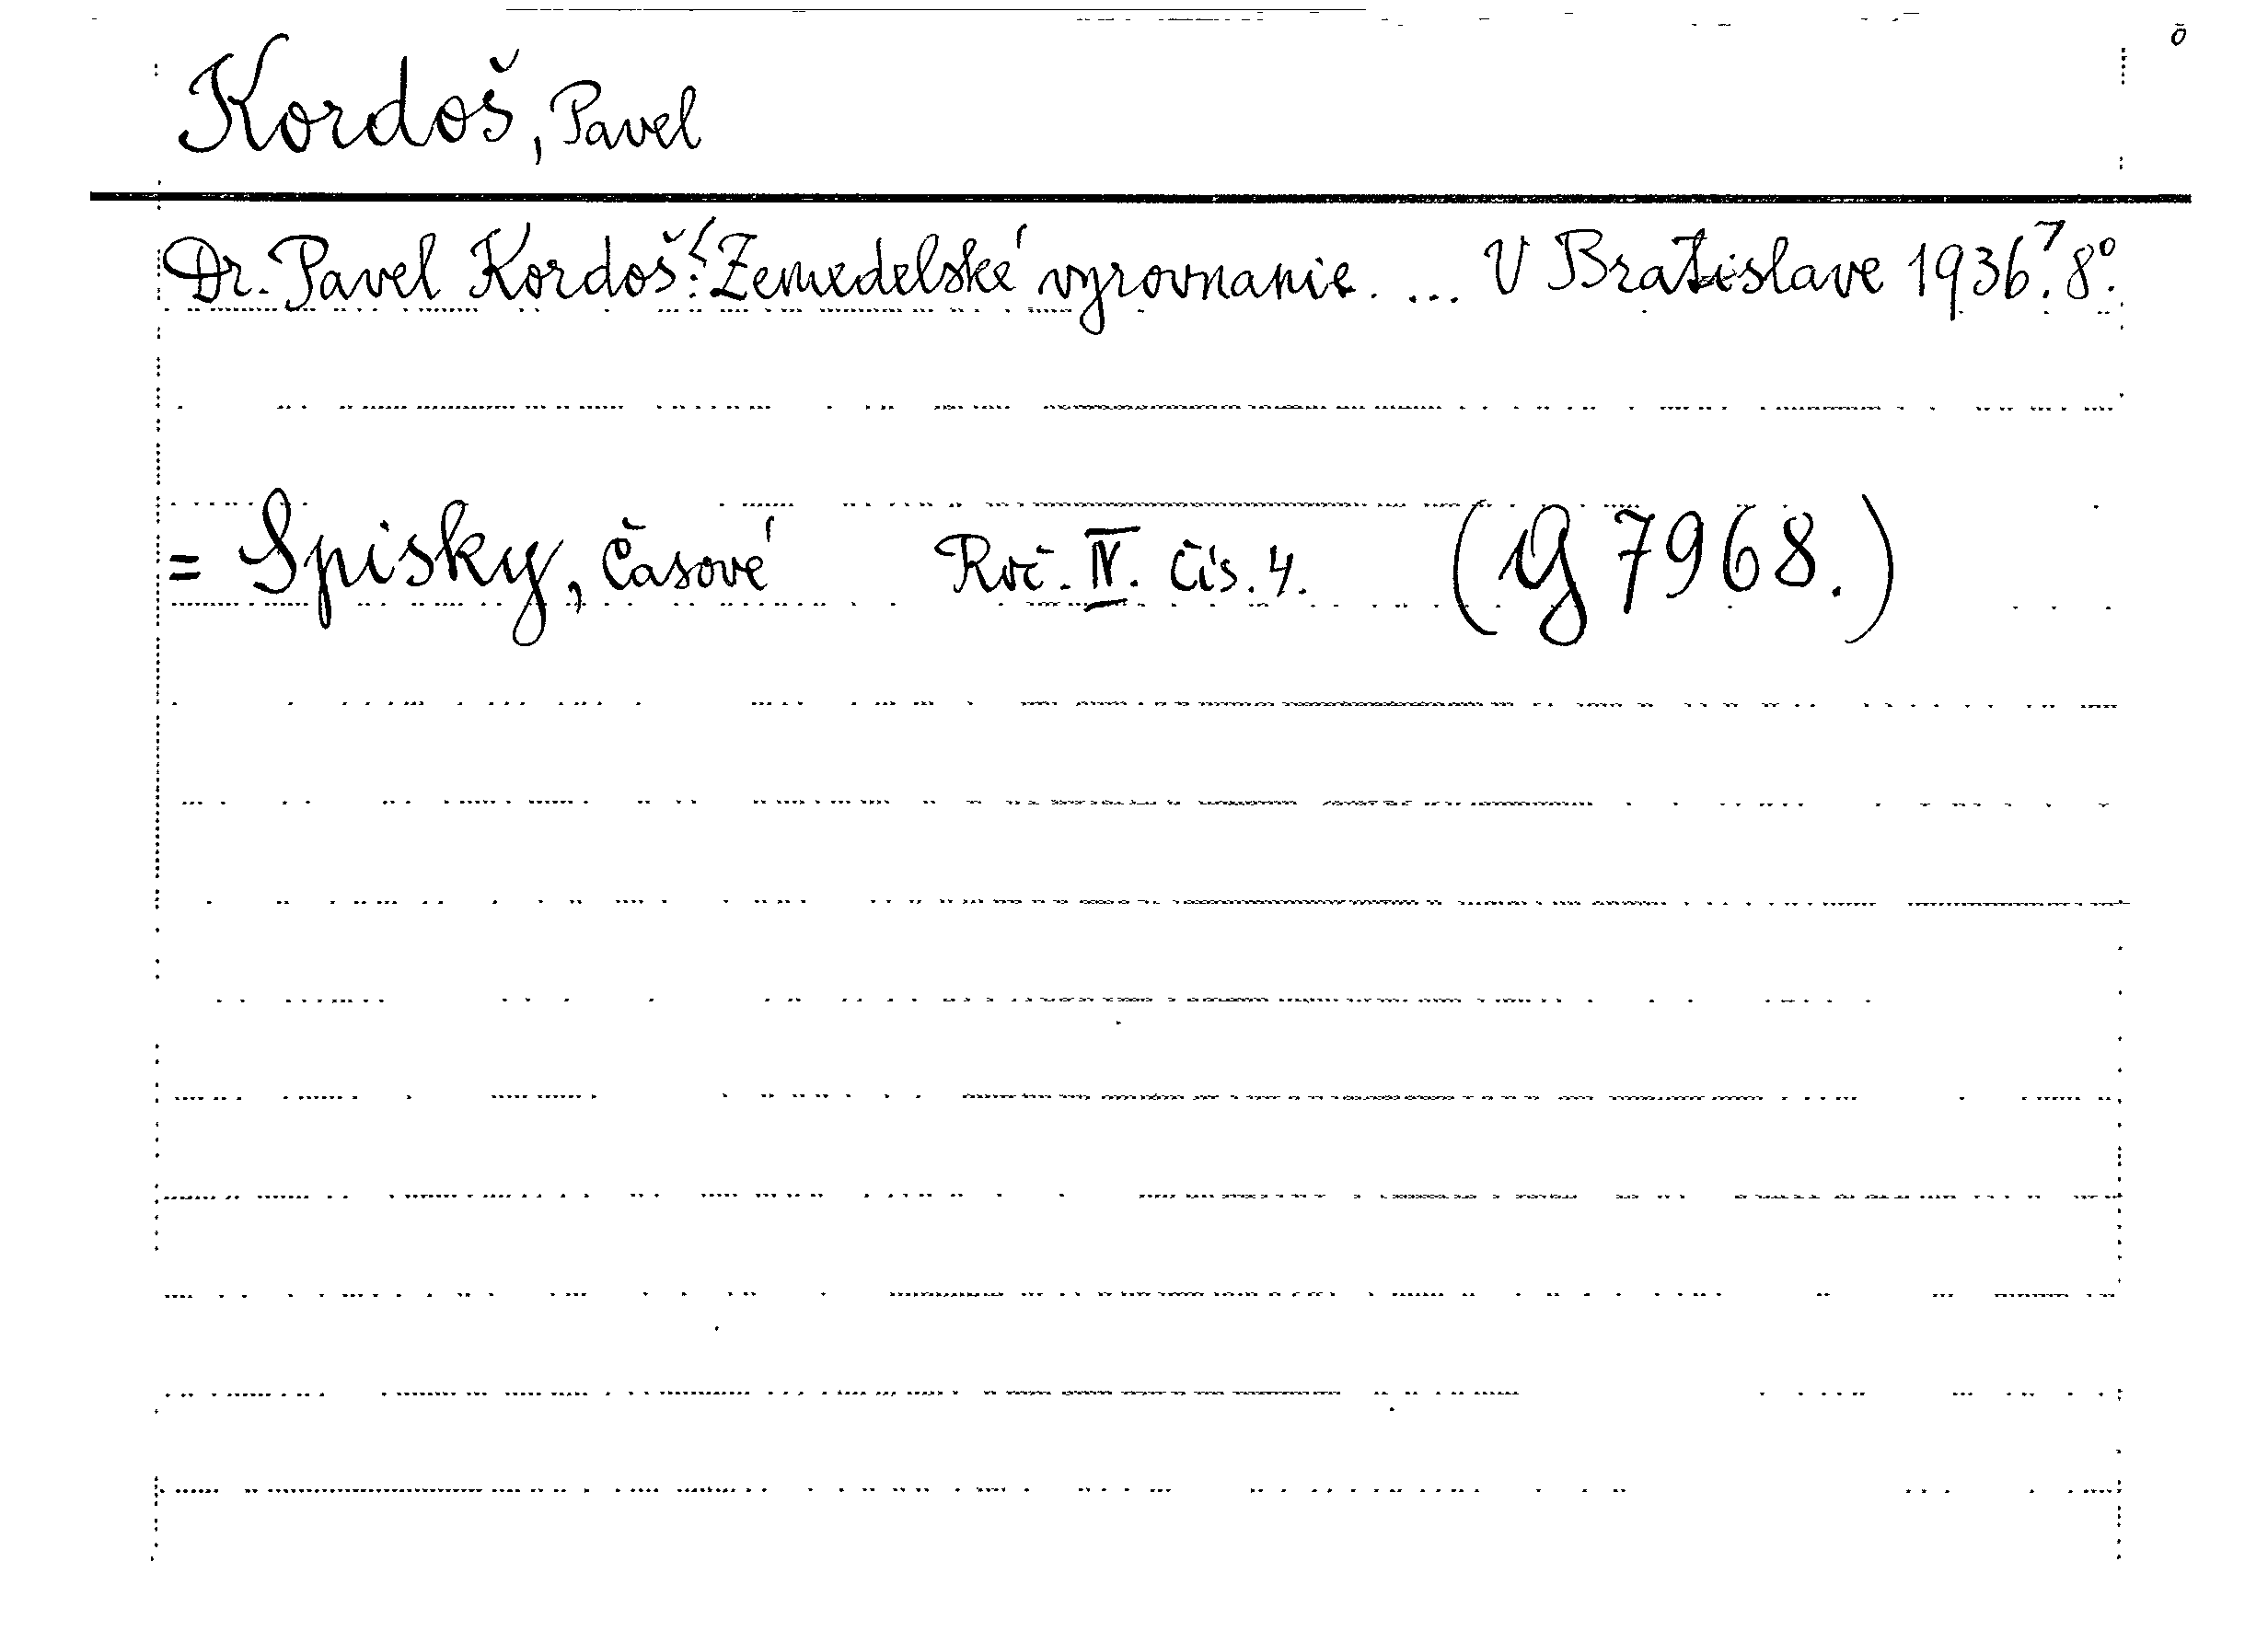 Kordoš, Pavel
Dr. Pavel Kordoš: [Zemedelské vyrovnanie. ... V Bratislave 1936.] 8°.
= Spisky, časové Roč. IV. čís. 4. (G 7968.)